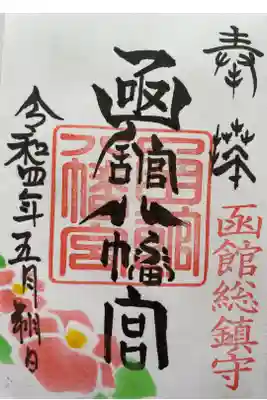 奉拝
函館総鎮守
函館八幡宮
令和四年五月朔日
函館八幡宮